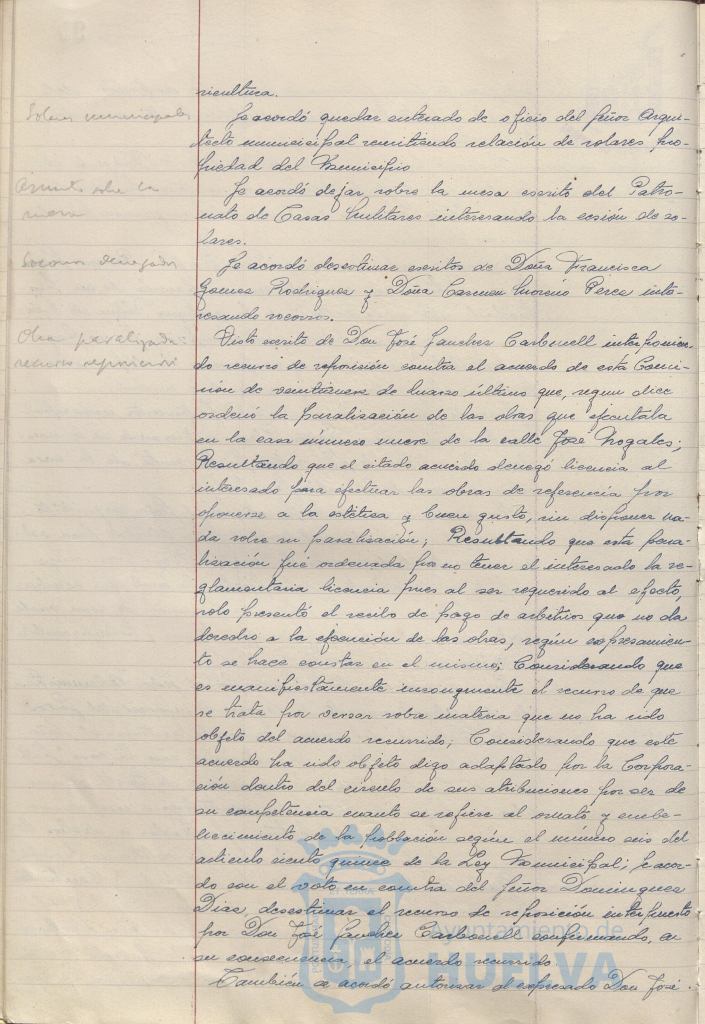 ricultura.
Solares municipales
Se acordó quedar enterado de oficio del Señor Arqui-
tecto municipal remitiendo relación de solares, pro-
piedad del Municipio
Asunto sobre la
mesa
Se acordó dejar sobre la mesa escrito del Patro-
nato de Casas Militares interesando la cesión de so-
lares.
Socorros denegados
Se acordó desestimar escritos de Doña Francisca
Gomez Rodriguez y Doña Carmen Moreno Perez inte-
resando socorros.
Obra paralizada:
recurso reposición
Visto escrito de Don José Sanchez Carbonell interponien-
do recurso de reposición contra el acuerdo de esta Comi-
sión de veintinueve de Marzo último que, segun dice
ordenó la paralización de las obras que ejecutaba
en la casa número nueve de la calle José Nogales;
Resultando que el citado acuerdo denegó licencia al
interesado para efectuar las obras de referencia por
oponerse a la estética y buen gusto, sin disponer na-
da sobre su paralización; Resultando que esta para-
lización fué ordenada por no tener el interesado la re-
glamentaria licencia pues al ser requerido al efecto,
solo presentó el recibo de pago de arbitrios que no da
derecho a la ejecución de las obras, según expresamen-
to se hace constar en el mismo; Considerando que
es manifiestamente el recurso de que
se trata por versar sobre materia que no ha sido
objeto del acuerdo recurrido; Considerando que este
acuerdo ha sido objeto digo adaptado por la Corpora-
ción dentro del circulo de sus atribuciones por ser de
su competencia cuanto se refiere al ornato y embe-
llecimiento de la población según el número seis del
articulo ciento quince de la Ley Municipal; Se acor-
do con el voto en contra del Señor Dominguez
Diaz, desestimar el recurso de reposición interpuesto
por Don José Sanchez Carbonell confirmando, en
su consecuencia, el acuerdo recurrido.
Tambien se acordó autorizar al expresado Don José
Ayuntamiento de
HUELVA